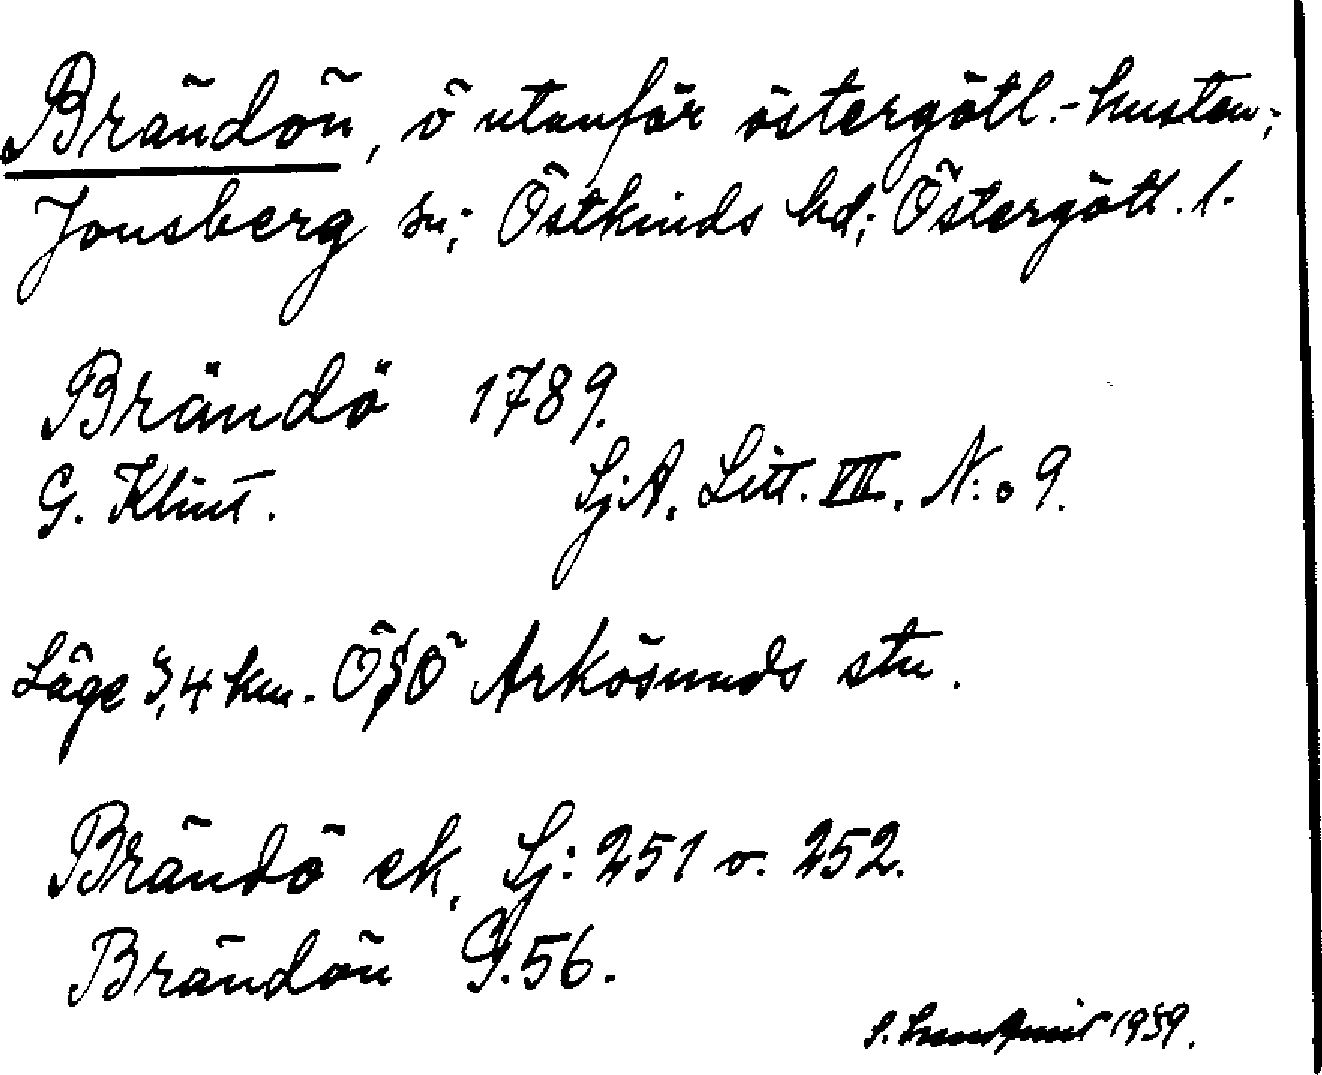 Brändön, ö utanför östergötl.-kusten;
Jonsberg sn; Östkinds hd; Östergötl. l.
Brändö 1789.
G. Klint. Sj.A. Litt. VII. N:o 9.
Läge 3,4 km. ÖSÖ Arkösunds stn.
Brändö ek. Sj: 251 o. 252.
Brändön G.56.
S. 1959.